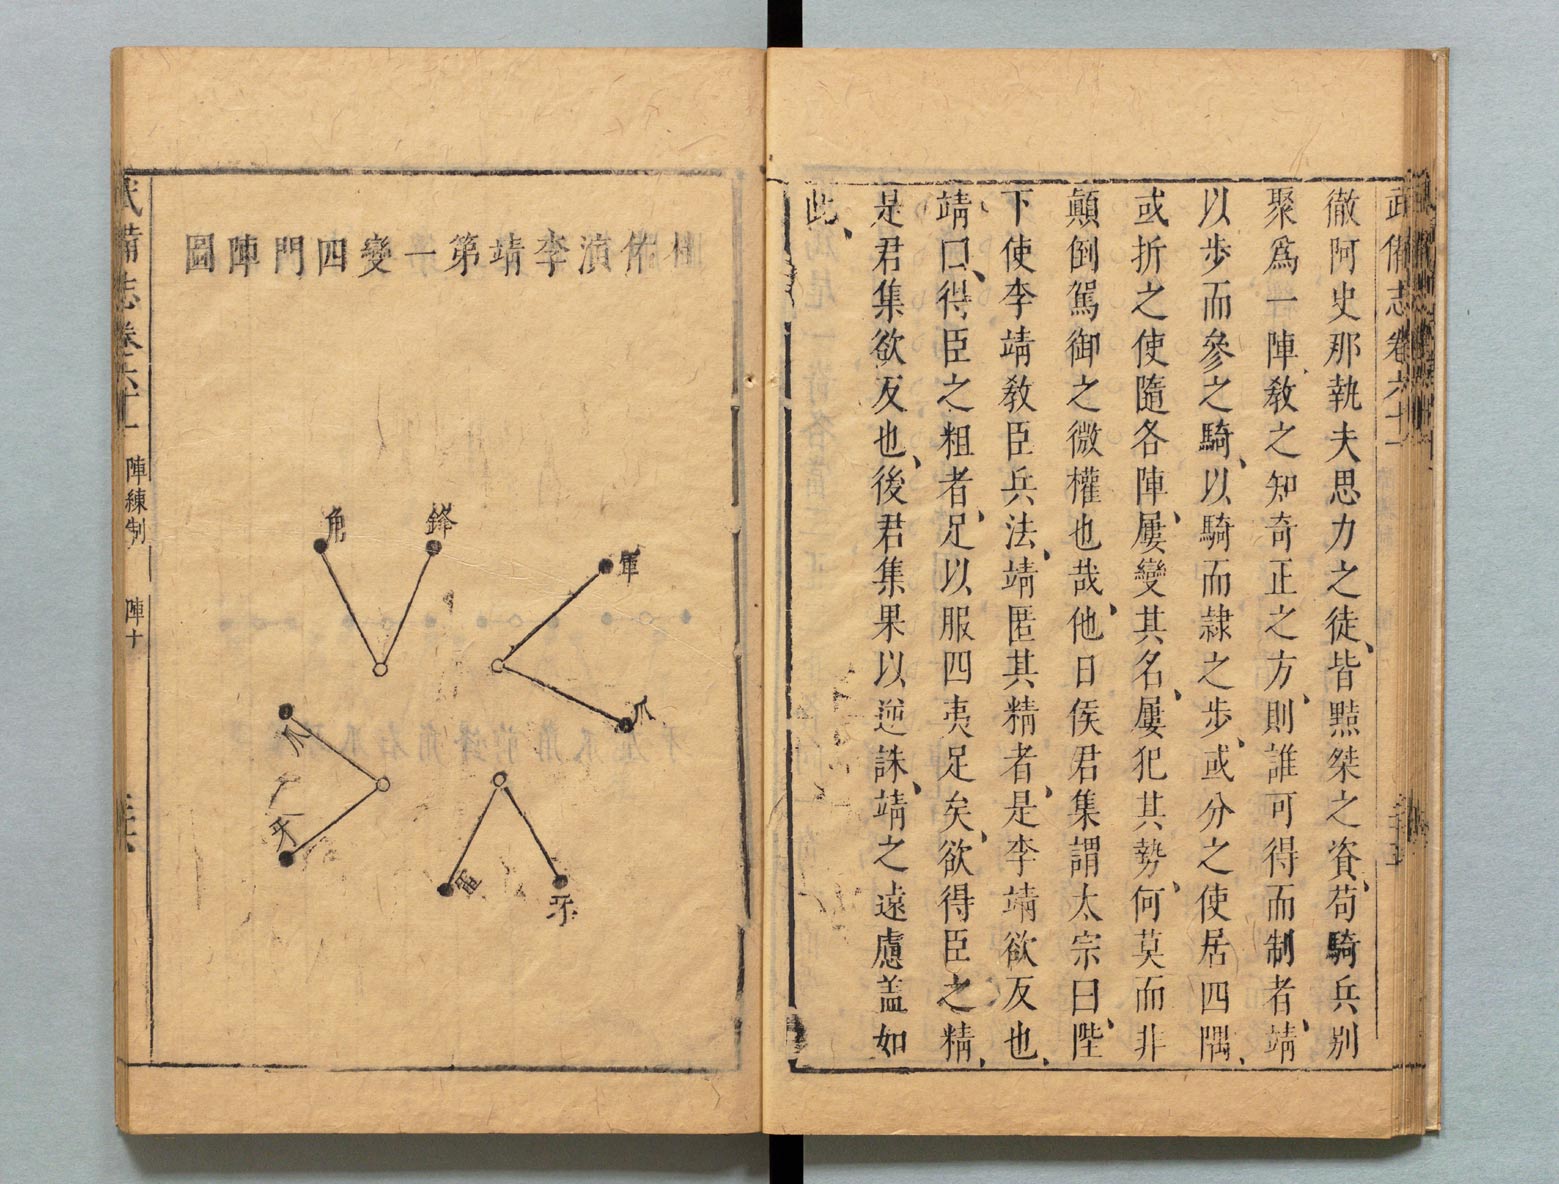 武備志卷六十一
徹阿史那執夫思力之徒皆黠桀之資苟騎兵別
聚爲一陣教之知奇正之方則誰可得而制者靖
以步而參之騎以騎而隷之步或分之使居四隅
或折之使隨各陣屢變其名屢犯其勢何莫而非
顛倒駕御之微權也哉他日侯君集謂太宗曰陛
下使李靖敎臣兵法靖匿其精者是李靖欲反也
靖曰得臣之粗者足以服四夷足矣欲得臣之精
是君集欲反也後君集果以逆誅靖之遠慮蓋如
此
演李靖第一變四門陣圖
角
鋒
軍
爪
爪
牙
牙
武備志卷六十一 陣練制 陣十